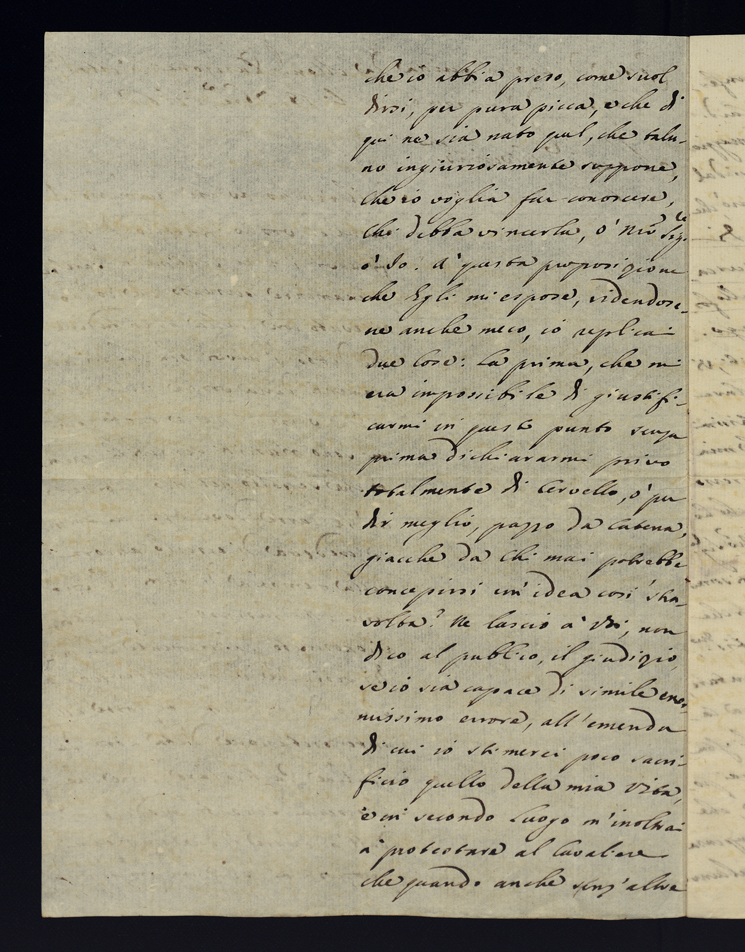 che io abbia preso, come suol
dirsi, per pura picca, e che di
qui ne sia nato quel, che talu-
no ingiuriosamente suppone,
che io voglia far conoscere,
chi debba vincerla, ò N̄ro Sig.re
ò Io. A' questa proposizione
che Egli mi espose, ridendose-
ne anche meco, io replicai
due cose: La prima, che mi
era impossibile di giustifi-
carmi in questo punto senza
prima dichiararmi privo
totalmente di Cervello, ò per
dir meglio, pazzo da Catena,
giacche da chi mai potrebbe
concepirsi un'idea così stra-
volta? Ne lascio à Voi, non
dico al publico, il giudizio,
se io sia capace di simile enor-
missimo errore, all'emenda
di cui io stimerei poco sacri-
ficio quello della mia vita,
e in secondo luogo m'inoltrai
à protestare al Cavaliere
che quando anche senz'altro